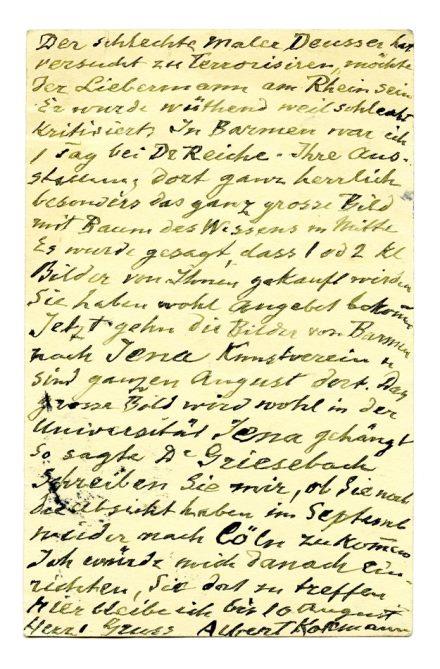 Der schlechte Maler Deusser hat
versucht zu Terrorisiren, möchte
der Liebermann am Rhein sein
Er wurde wüthend weil schlecht
Kritisiert. In Barmen war ich
1 Tag bei Dr Reiche. Ihre Aus-
stellung dort ganz herrlich
besonders das ganz grosse Bild
mit Baum des Wissens in Mitte
Es wurde gesagt, dass 1 od 2 kl
Bilder von Ihnen gekauft wird
Sie haben wohl Angebot bekomm
Jetzt gehn die Bilder von Barmen
nach Jena Kunstverein u
sind ganzen August dort. Das
grosse Bild wird wohl in der
Universität Jena gehängt
so sagte Dr Griesebach
Schreiben Sie mir, ob Sie noch
die Absicht haben im Septemb
wieder nach Cöln zu komen
Ich würde mich danach ein-
richten, Sie dort zu treffen
Hier bleibe ich bis 10 August
Herzl Gruss Albert Kollmann